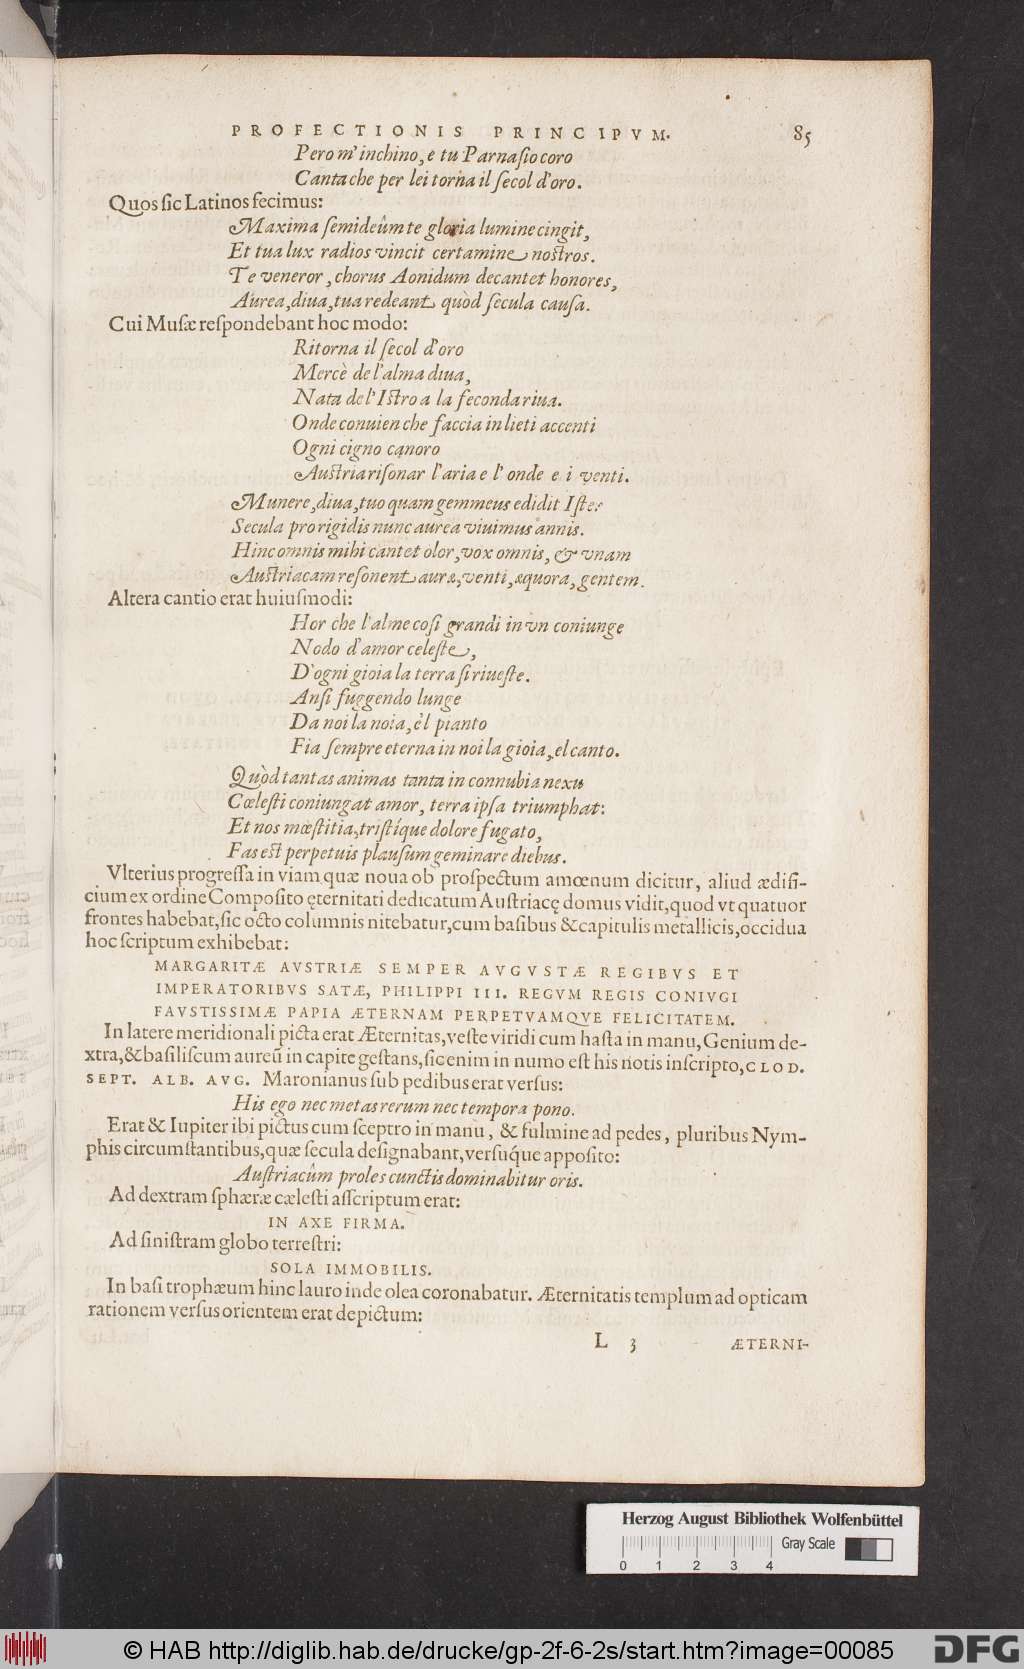 PROFECTIONIS PRINCIPVM. 85
Pero m' inchino, e tu Parnasio coro
Canta che per lei torna il secol d'oro.
Quos sic Latinos fecimus:
Maxima semideûm te gloria lumine cingit,
Et tua lux radios vincit certamine nostros.
Te veneror, chorus Aonidum decantet honores,
Aurea, diua, tua redeant quòd secula causa.
Cui Musæ respondebant hoc modo:
Ritorna il secol d'oro
Mercè de l'alma diua,
Nata de l'Istro a la feconda riua.
Onde conuien che faccia in lieti accenti
Ogni cigno canoro
Austria risonar l'aria e l' onde e i venti.
Munere, diua, tuo quam gemmeus edidit Ister
Secula pro rigidis nunc aurea viuimus annis.
Hinc omnis mihi cantet olor, vox omnis, & vnam
Austriacam resonent auræ, venti, æquora, gentem.
Altera cantio erat huiusmodi:
Hor che l'alme cosi grandi in vn coniunge
Nodo d'amor celeste,
D'ogni gioia la terra si riueste.
Ansi fuggendo lunge
Da noi la noia, è'l pianto
Fia sempre eterna in noi la gioia, el canto.
Quòd tantas animas tanta in connubia nexu
Cœlesti coniungat amor, terra ipsa triumphat:
Et nos mœstitia, tristíque dolore fugato,
Fas est perpetuis plausum geminare diebus.
Vlterius progressa in viam quæ noua ob prospectum amœnum dicitur, aliud ædifi-
cium ex ordine Composito ęternitati dedicatum Austriacę domus vidit, quod vt quatuor
frontes habebat, sic octo columnis nitebatur, cum basibus & capitulis metallicis, occidua
hoc scriptum exhibebat:
MARGARITÆ AVSTRIÆ SEMPER AVGVSTÆ REGIBVS ET
IMPERATORIBVS SATÆ, PHILIPPI III. REGVM REGIS CONIVGI
FAVSTISSIMÆ PAPIA ÆTERNAM PERPETVAMQVE FELICITATEM.
In latere meridionali picta erat Æternitas, veste viridi cum hasta in manu, Genium de-
xtra, & basiliscum aureū in capite gestans, sic enim in numo est his notis inscripto, CLOD.
SEPT. ALB. AVG. Maronianus sub pedibus erat versus:
His ego nec metas rerum nec tempora pono.
Erat & Iupiter ibi pictus cum sceptro in manu, & fulmine ad pedes, pluribus Nym-
phis circumstantibus, quæ secula designabant, versúque apposito:
Austriacûm proles cunctis dominabitur oris.
Ad dextram sphæræ cælesti asscriptum erat:
IN AXE FIRMA.
Ad sinistram globo terrestri:
SOLA IMMOBILIS.
In basi trophæum hinc lauro inde olea coronabatur. Æternitatis templum ad opticam
rationem versus orientem erat depictum:
L 3 ÆTERNI-
Herzog August Bibliothek Wolfenbüttel
Gray Scale
0 1 2 3 4
© HAB http://diglib.hab.de/drucke/gp-2f-6-2s/start.htm?image=00085
DFG